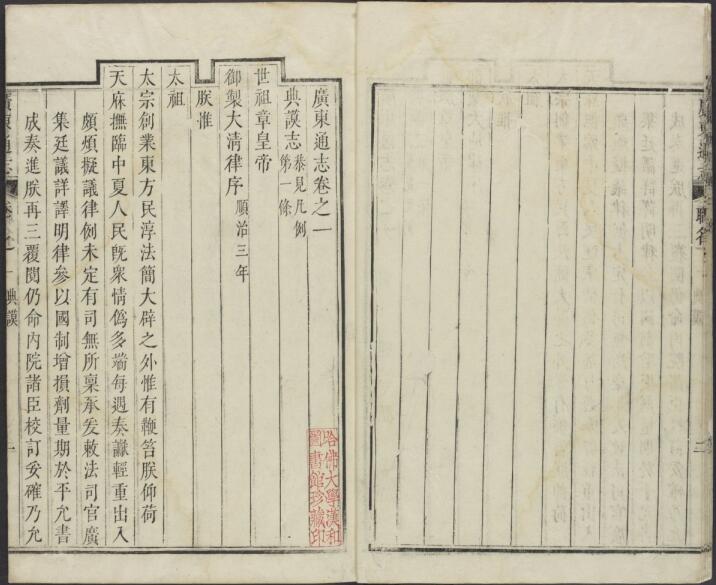 廣東通志卷之一
典謨志 恭見凡例
第一條
世祖章皇帝
御製大清律序 順治三年
朕惟
太祖
太宗創業東方民淳法簡大辟之外惟有鞭笞朕仰荷
天庥撫臨中夏人民既衆情偽多端每遇奏讞輕重出入
頗煩擬議律例未定有司無所稟承爰敕法司官廣
集廷議詳譯明律參以國制增損劑量期於平允書
成奏進朕再三覆閱仍命內院諸臣校訂妥確乃允
廣東通志 卷之一 典謨 一
哈佛大學漢和
圖書館珍藏印